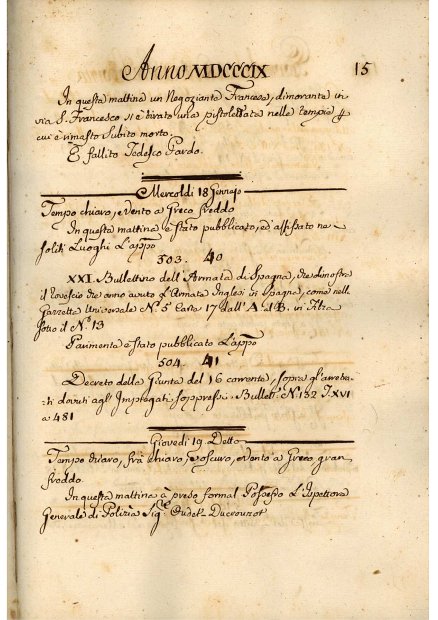 Anno MDCCCIX 15
In questa mattina un Negoziante Francese, dimorante in
via S. Francesco si è tirato una pistolettata nelle tempie p
cui è rimasto subito morto.
È fallito Tedesco Pardo.
Mercoldì 18 Gennajo
Tempo chiaro, e vento a Greco freddo
In questa mattina è stato pubblicato, ed affissato ne
soliti Luoghi L'appo
503. 40
XXI. Bullettino dell'Armata di Spagna, che dimostra
il rovescio che anno avuto l'Armata Inglesi in Spagna, come nella
Gazzetta Universale N.° 5° Carta 17 dall'A al B. in Filza
sotto il N.° 13
Parimente è stato pubblicato L'appo
504. 41
Decreto della Giunta del 16 corrente, sopra gl'arretra-
-ti dovuti agl'Impiegati soppressi. Bullett.° N.° 132 T. XVI
a 481
Giovedì 19 Detto
Tempo chiaro, fra chiaro, e oscuro, e vento a Greco gran
freddo.
In questa mattina à preso formal Possesso L'Ispettore
Generale di Polizia Sig.e Ducrouzot